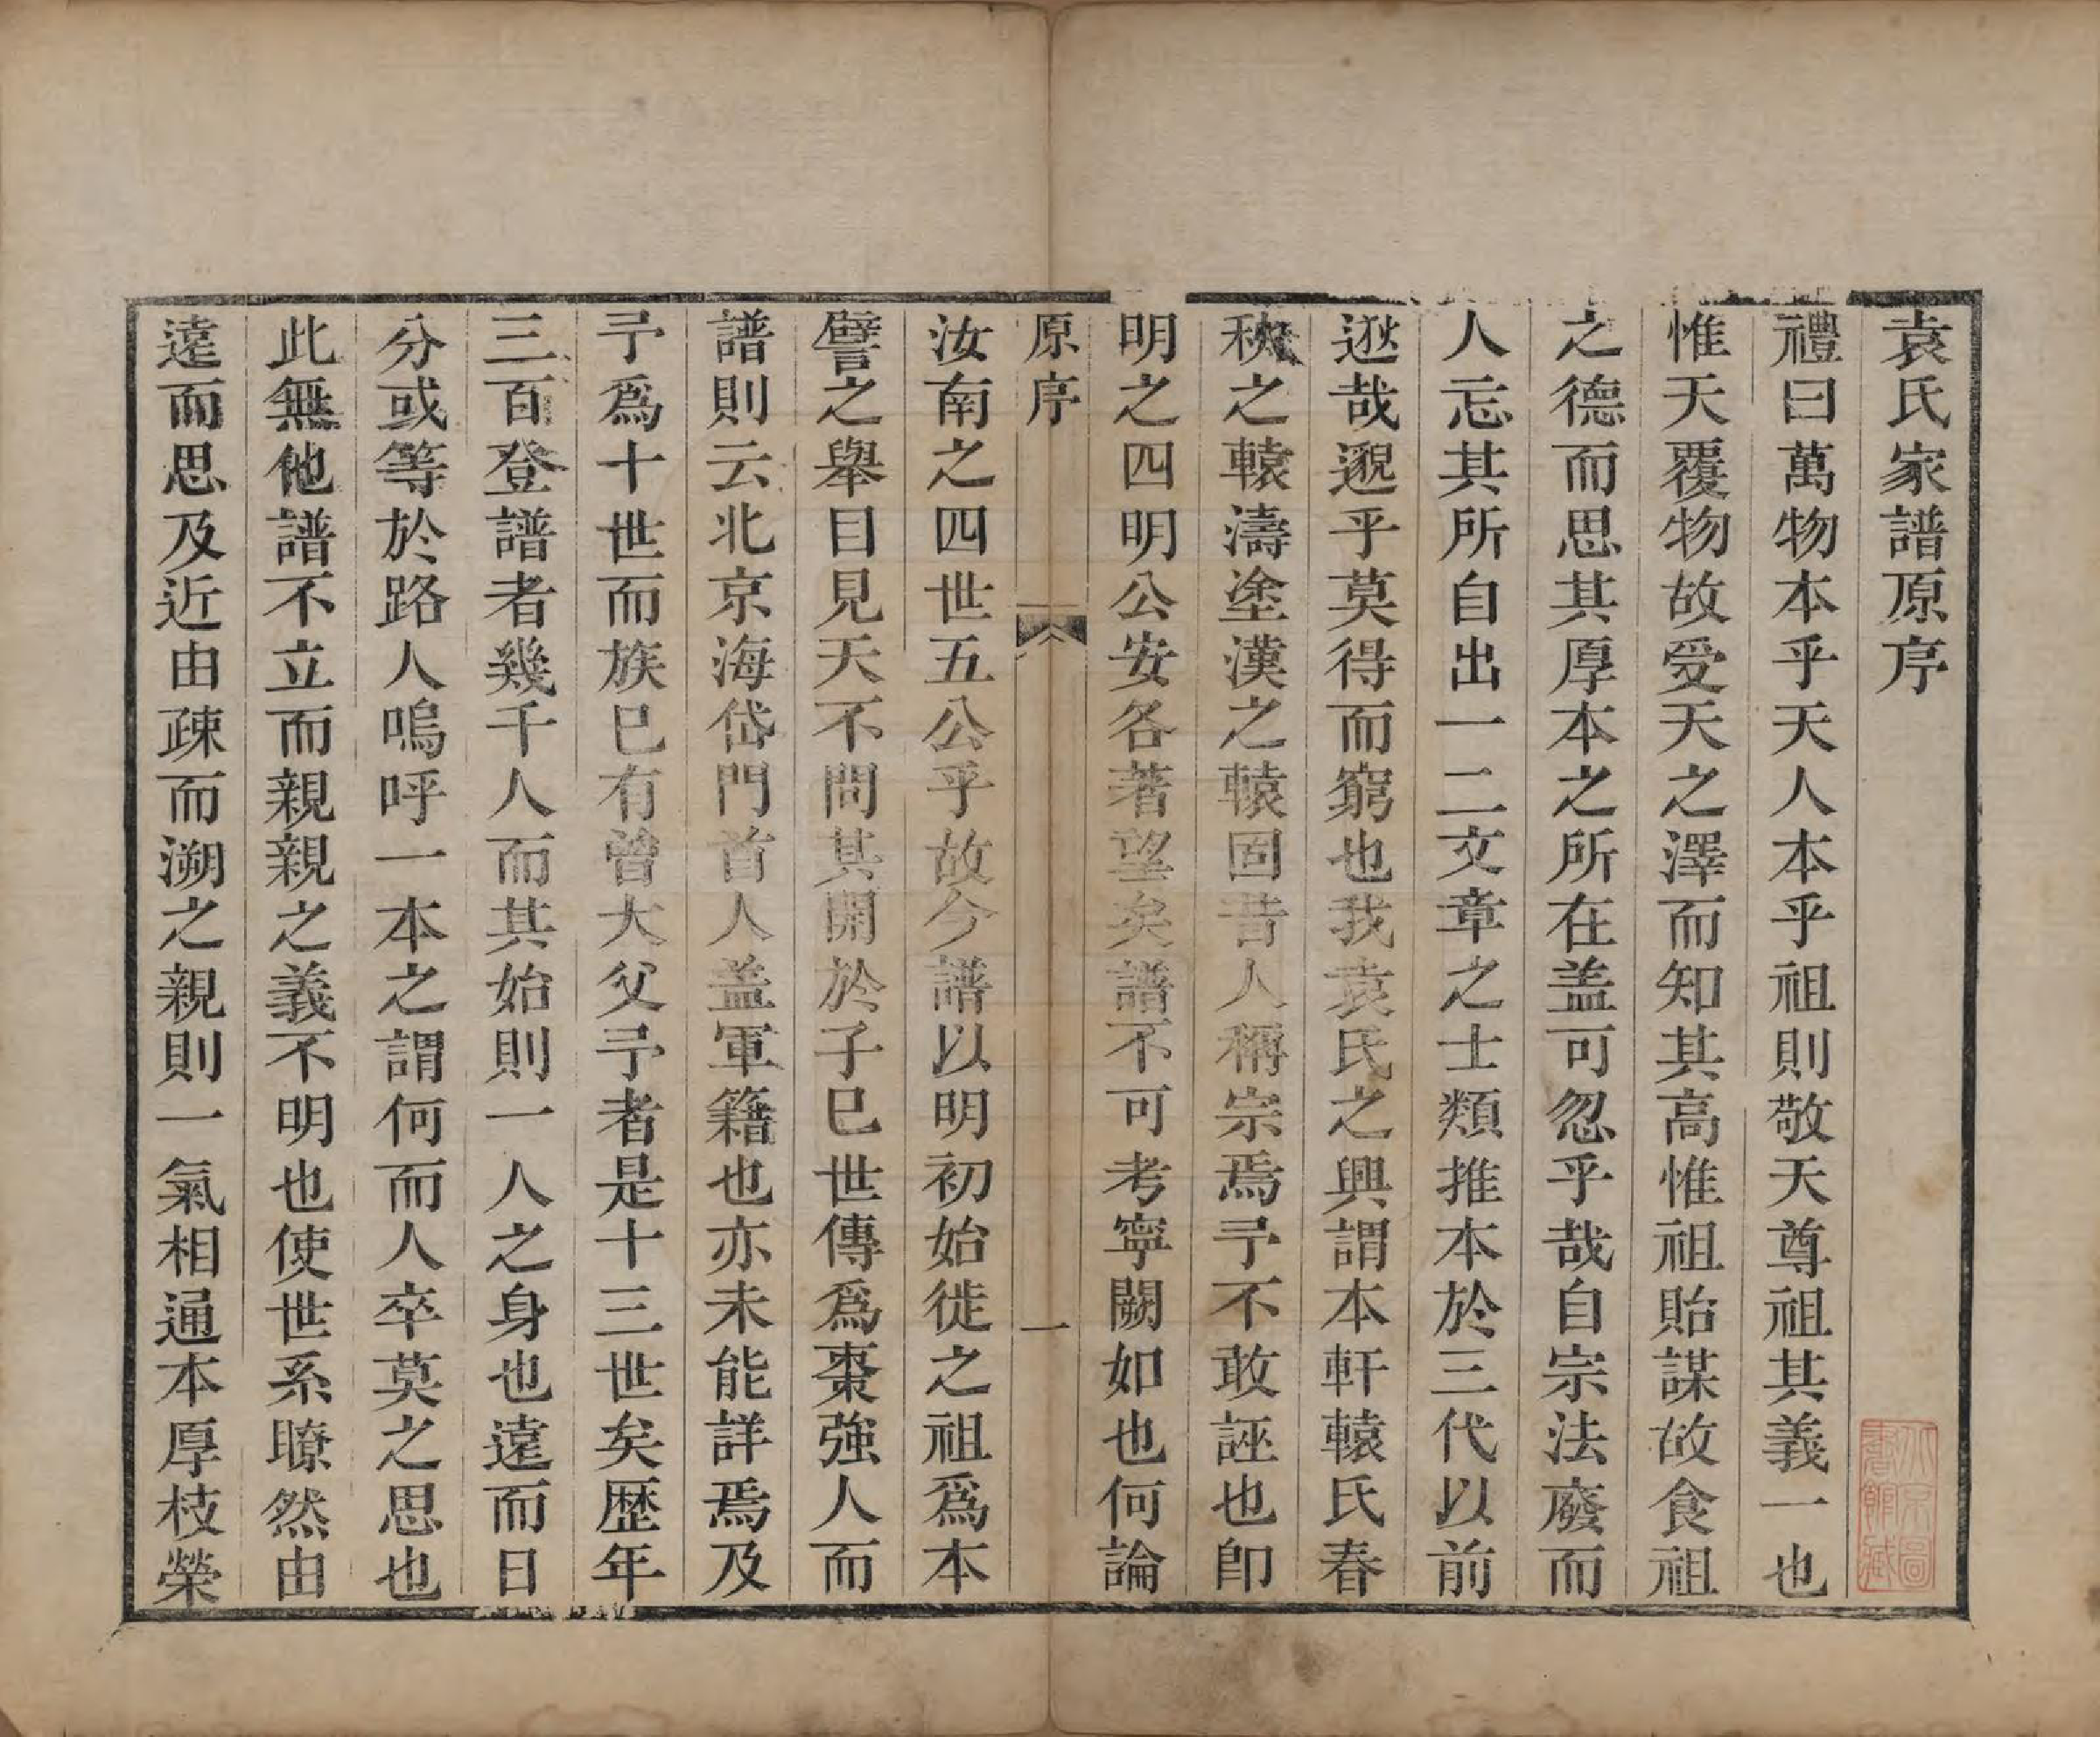 袁氏家譜原序
禮曰萬物本乎天人本乎祖則敬天尊祖其義一也
惟天覆物故受天之澤而知其高惟祖貽謀故食祖
之德而思其厚本之所在盖可忽乎哉自宗法廢而
人忘其所自出一二文章之士類推本於三代以前
逖哉邈乎莫得而窮也我袁氏之興謂本軒轅氏春
秋之轅濤塗漢之轅固昔人稱宗焉予不敢誣也卽
明之四明公安各著望矣譜不可考寧闕如也何論
原序
一
汝南之四世五公乎故今譜以明初始徙之祖爲本
譬之舉目見天不問其開於子巳世傳爲棗強人而
譜則云北京海岱門首人盖軍籍也亦未能詳焉及
予爲十世而族巳有曾大父予者是十三世矣歴年
三百登譜者幾千人而其始則一人之身也遠而日
分或等於路人嗚呼一本之謂何而人卒莫之思也
此無他譜不立而親親之義不明也使世系瞭然由
遠而思及近由疎而溯之親則一氣相通本厚枝榮